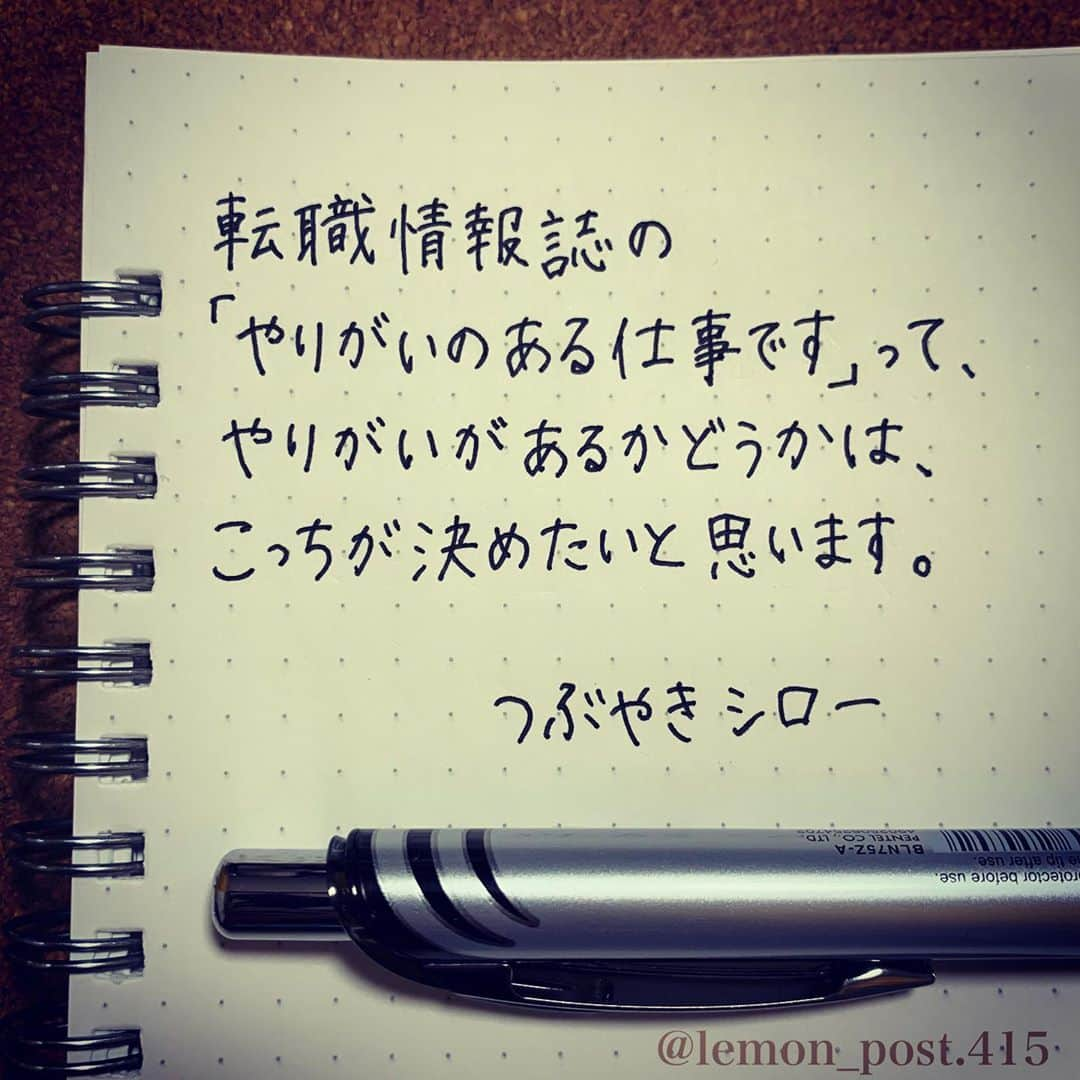 転職情報誌の
「やりがいのある仕事です」って、
やりがいがあるかどうかは、
こっちが決めたいと思います。
つぶやきシロー
BLN75Z-A
PENTEL CO., LTD.
tip after use.
protector before use.
@lemon_post.415